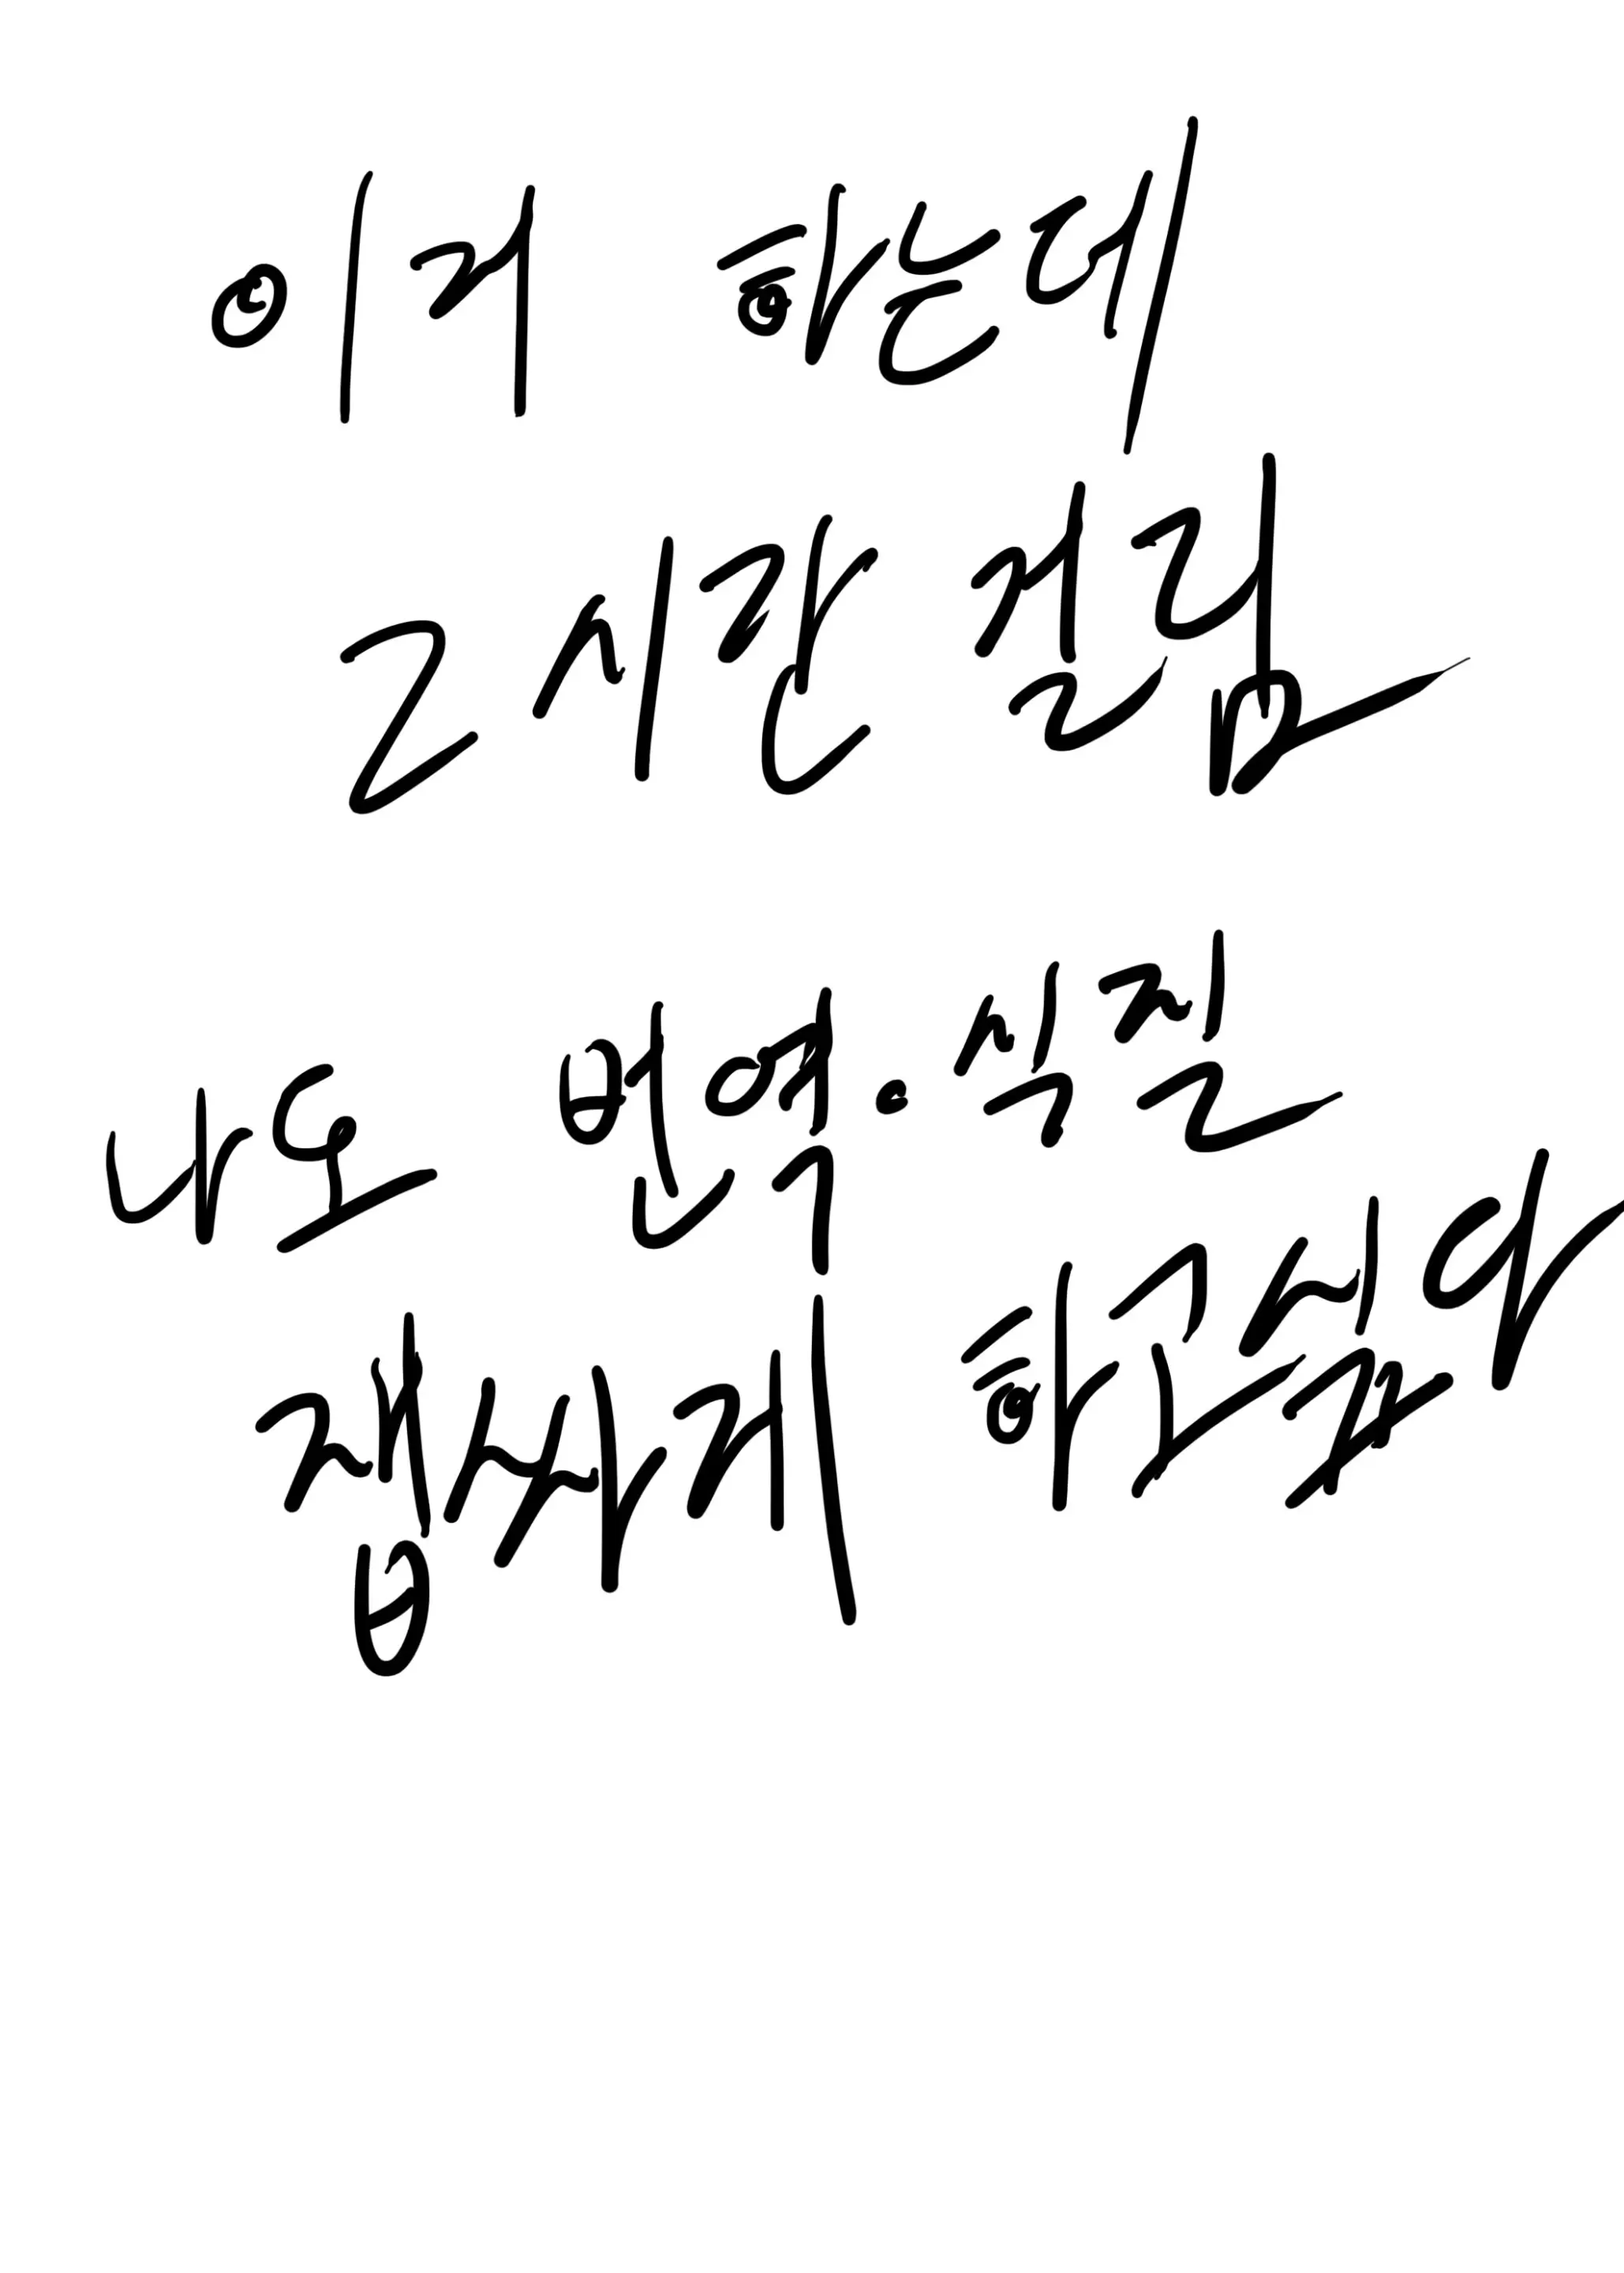 이거 하는데
2시간 걸림
나도 번역. 식질
잽싸게 하고싶다